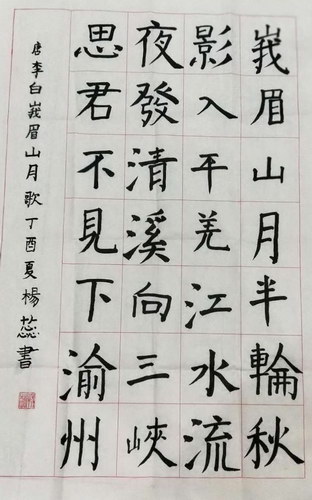 峩眉山月半輪秋
影入平羌江水流
夜發清溪向三峽
思君不見下渝州
唐李白峩眉山月歌丁酉夏楊蕊書